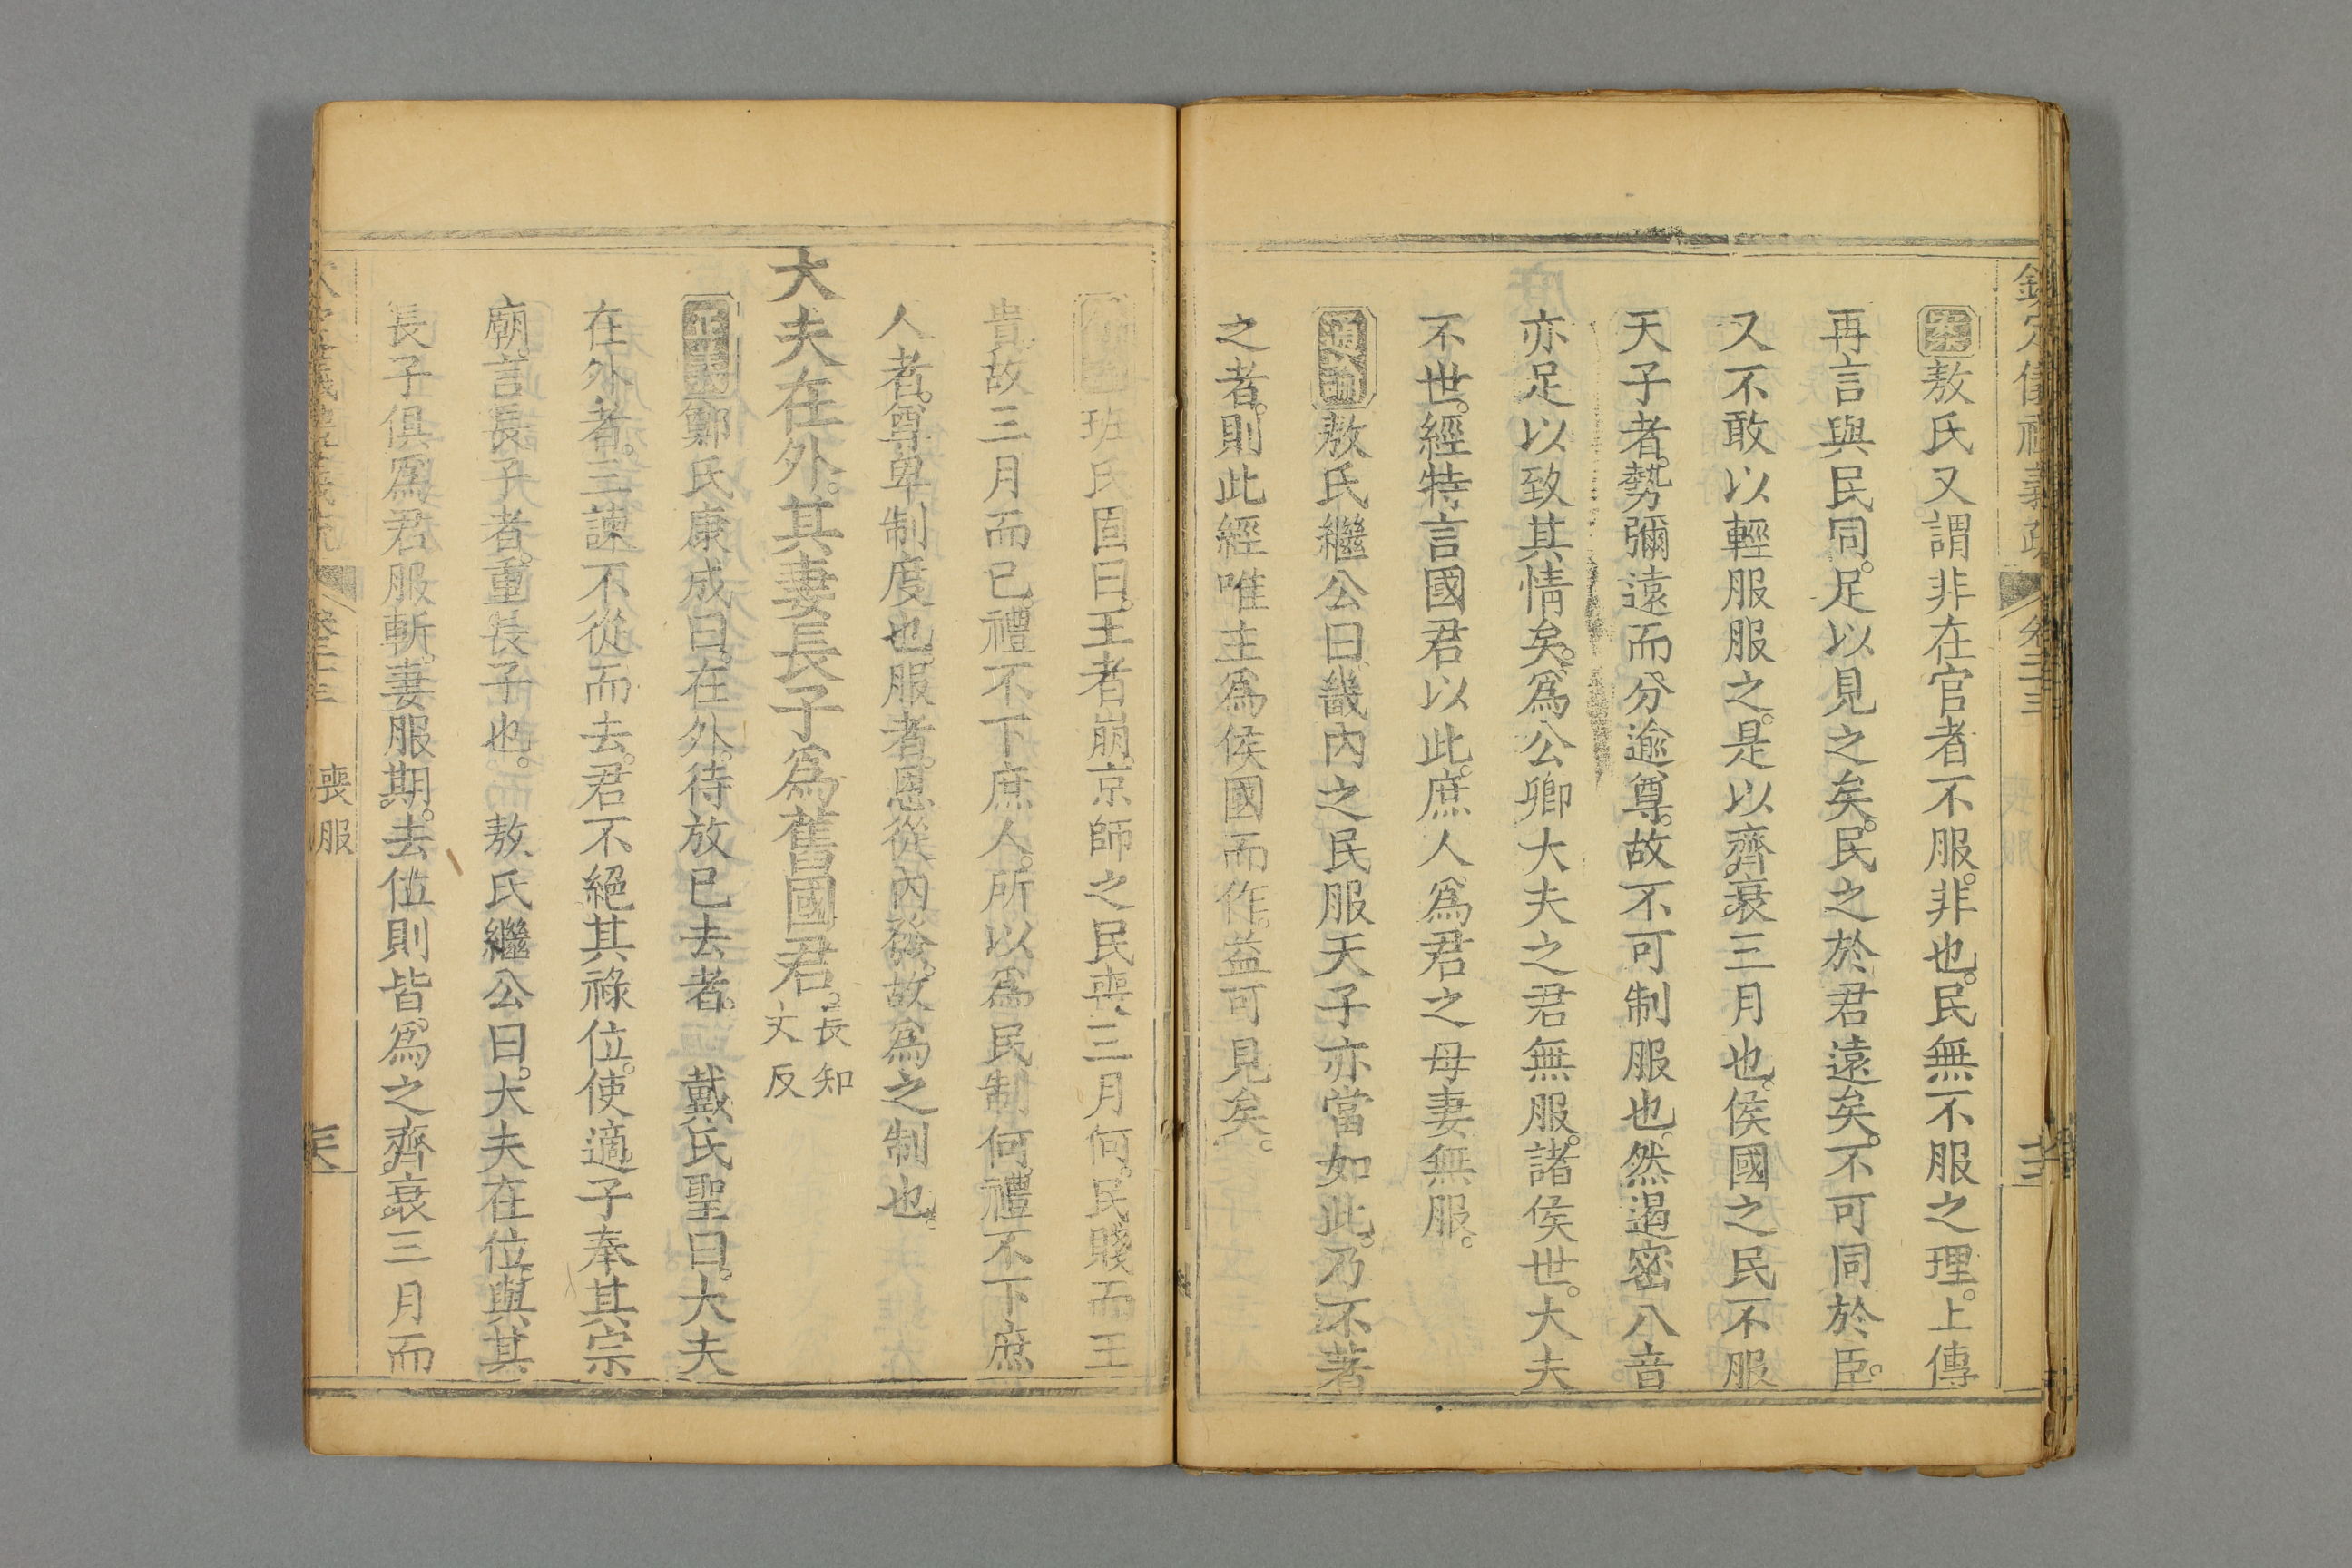 欽定儀禮義疏 卷二十三
案敖氏又謂非在官者不服。非也。民無不服之理。上傳
再言與民同。足以見之矣。民之於君遠矣。不可同於臣。
又不敢以輕服服之。是以齊衰三月也。侯國之民不服
天子者。勢彌遠而分逾尊。故不可制服也。然遏密八音
亦足以致其情矣。爲公卿大夫之君無服。諸侯世。大夫
不世。經特言國君以此。庶人爲君之母妻無服。
通論敖氏繼公曰。畿內之民服天子亦當如此。乃不著
之者。則此經唯主爲侯國而作。益可見矣。
班氏固曰。王者崩。京師之民喪三月何。民賤而王
貴。故三月而已。禮不下庶人。所以爲民制何。禮不下庶
人者。尊卑制度也。服者。恩從內發。故爲之制也。
大夫在外。其妻長子爲舊國君。長知丈反
正義鄭氏康成曰。在外。待放已去者。 戴氏聖曰。大夫
在外者。三諫不從而去。君不絕其祿位。使適子奉其宗
廟。言長子者。重長子也。 敖氏繼公曰。大夫在位。與其
長子俱爲君服斬。妻服期。去位則皆爲之齊衰三月而
卷二十三 喪服